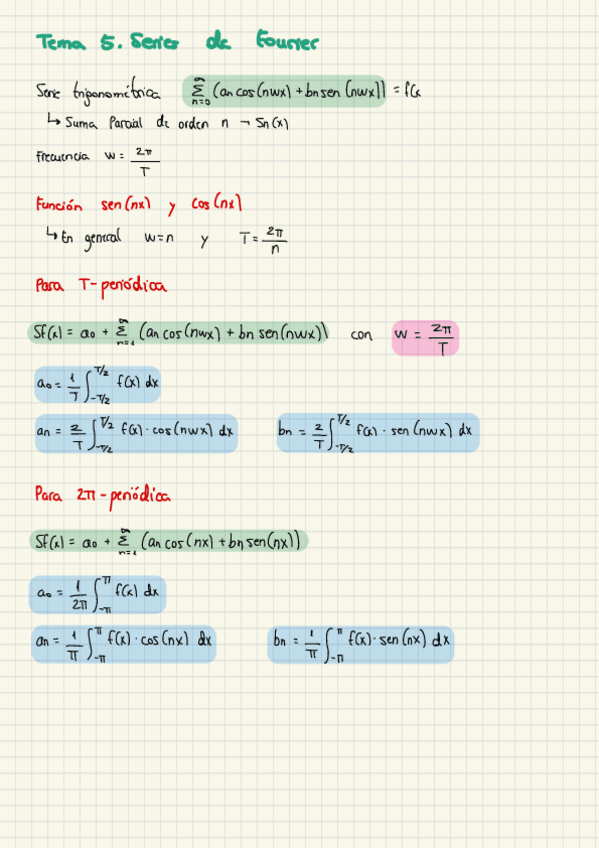 Tema 5. Series de Fourier
Serie trigonométrica ∑_{n=0}^{∞} (an cos(nwx) + bn sen(nwx)) = f(x
↳ Suma Parcial de orden n → Sn(x)
Frecuencia w = 2π/T
Función sen(nx) y cos(nx)
↳ En general w=n y T = 2π/n
Para T-periódica
Sf(x) = a0 + ∑_{n=1}^{∞} (an cos(nwx) + bn sen(nwx)) con w = 2π/T
a0 = 1/T ∫_{-T/2}^{T/2} f(x) dx
an = 2/T ∫_{-T/2}^{T/2} f(x) · cos(nwx) dx bn = 2/T ∫_{-T/2}^{T/2} f(x) · sen(nwx) dx
Para 2π-periódica
Sf(x) = a0 + ∑_{n=1}^{∞} (an cos(nx) + bn sen(nx))
a0 = 1/2π ∫_{-π}^{π} f(x) dx
an = 1/π ∫_{-π}^{π} f(x) · cos(nx) dx bn = 1/π ∫_{-π}^{π} f(x) · sen(nx) dx